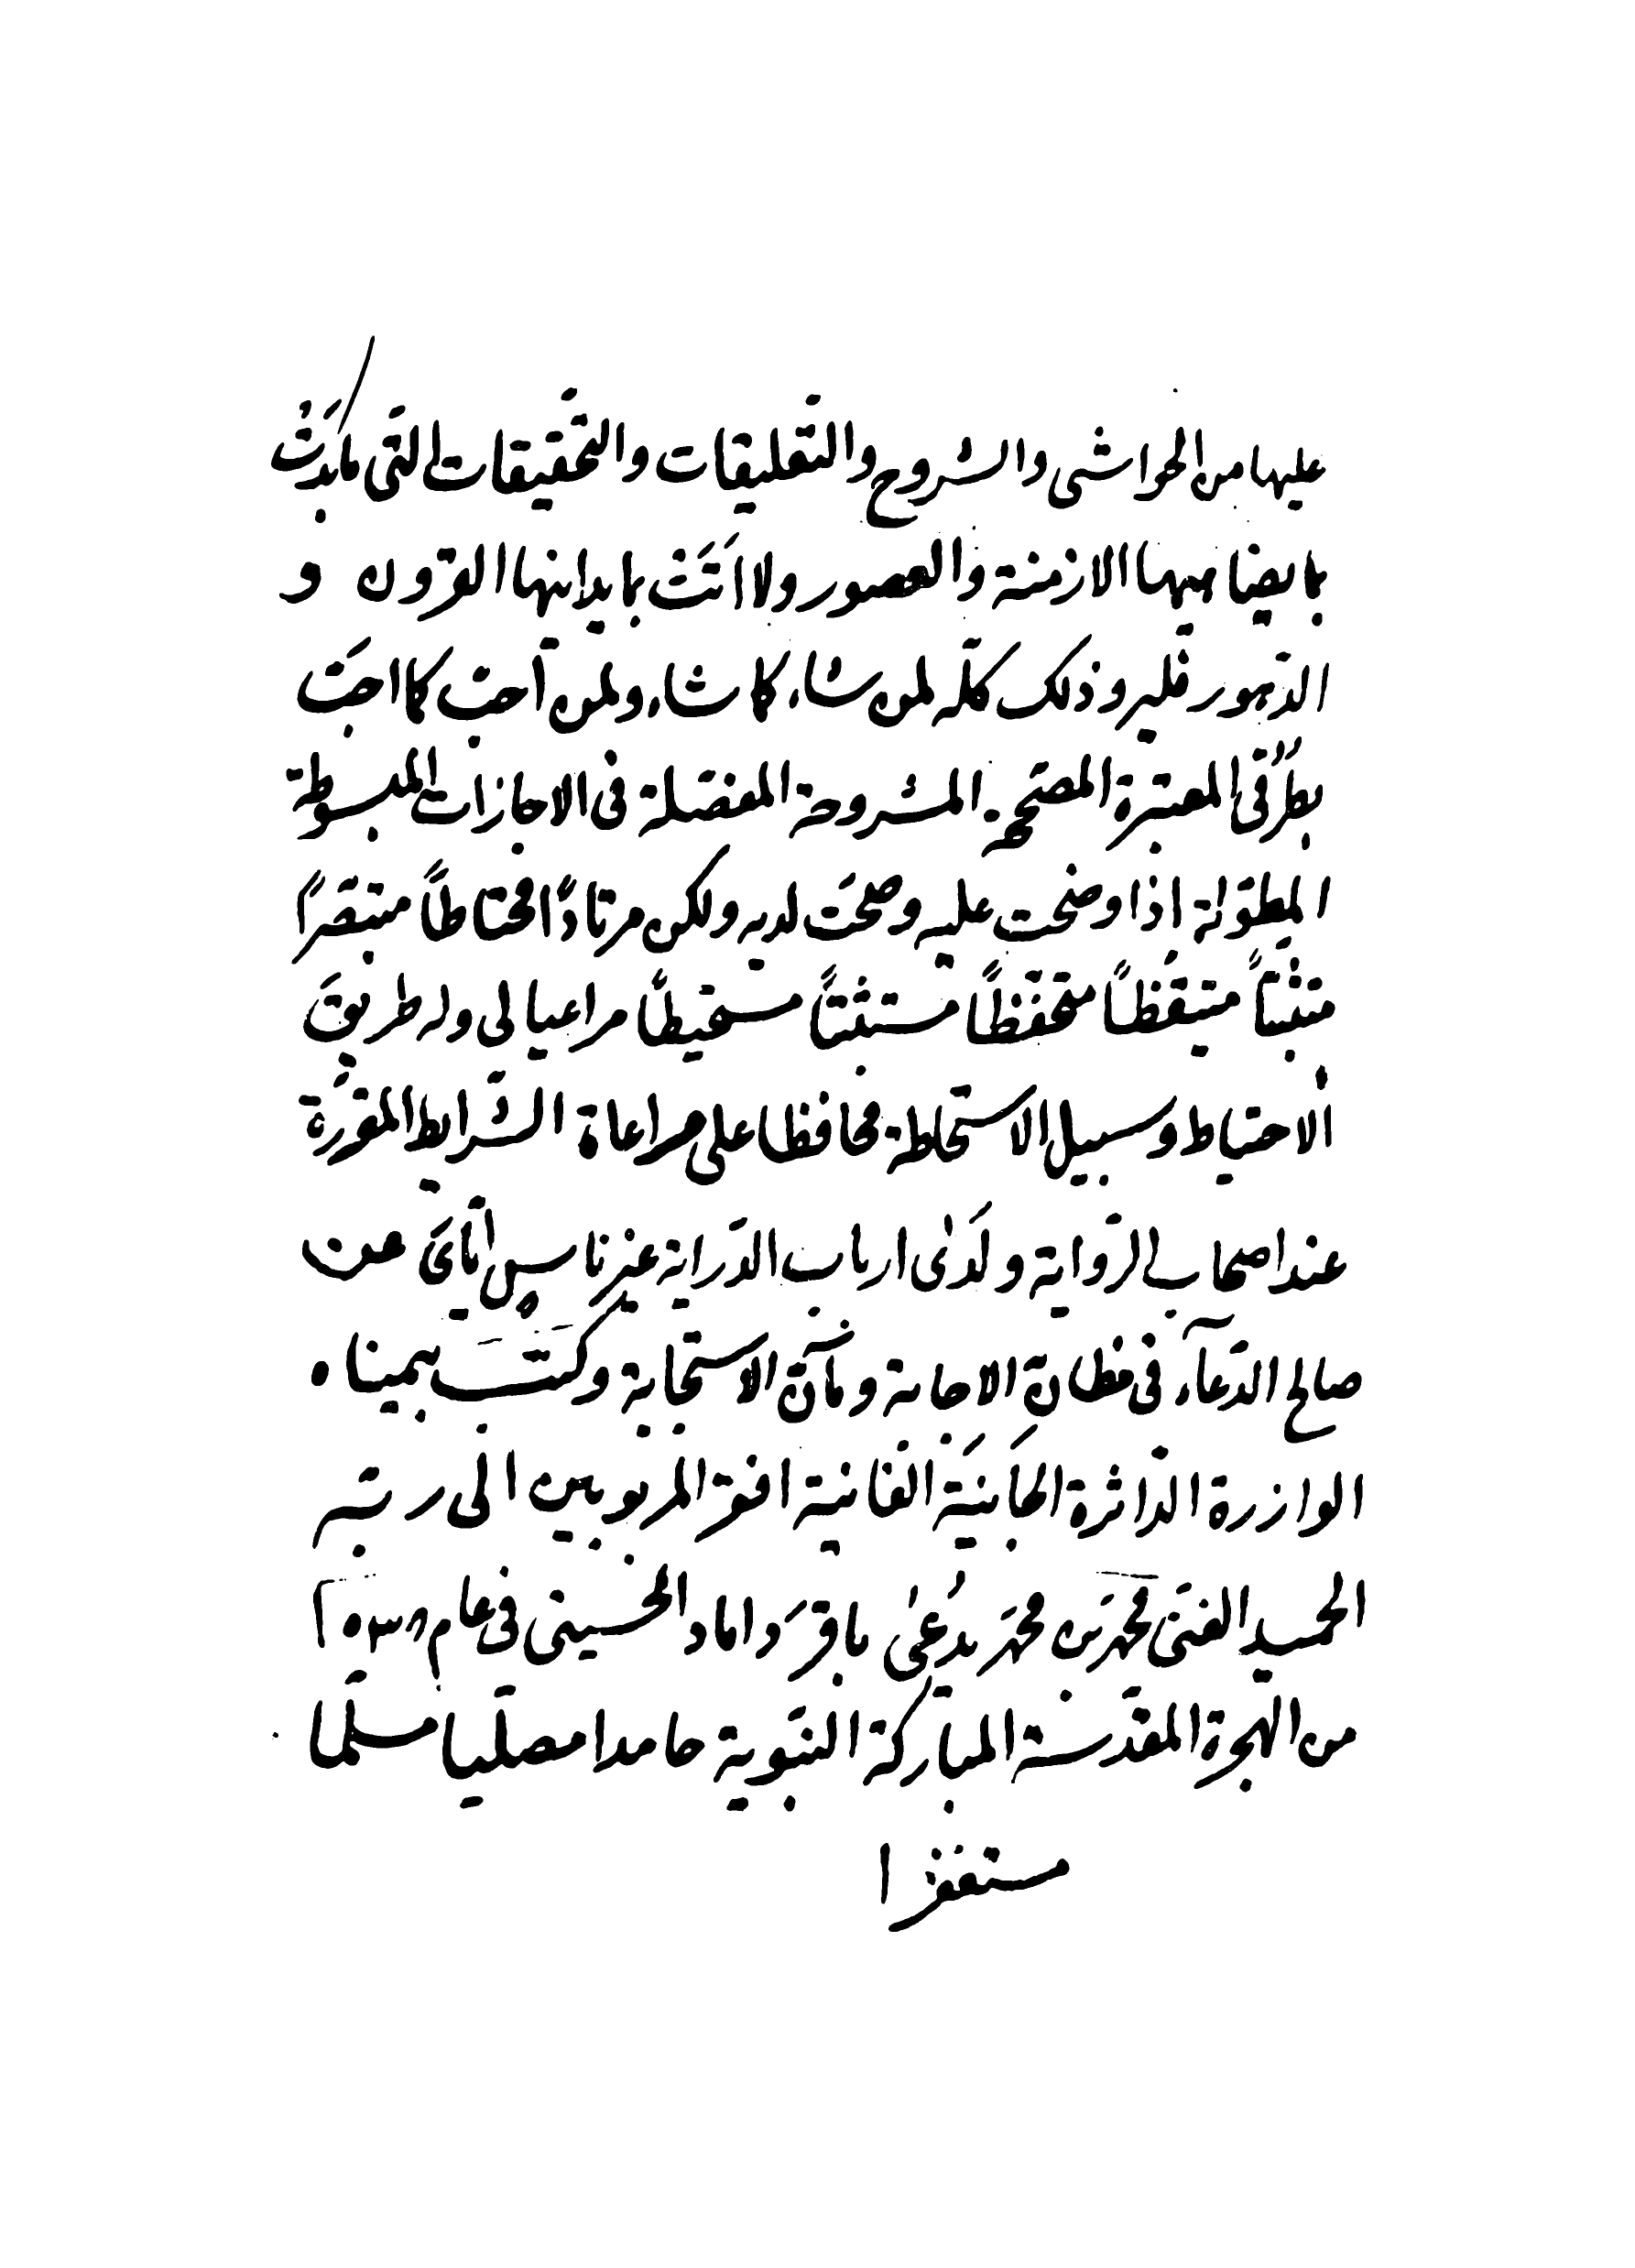 عليها من الحواشى والشروح والتعليقات والتحقيقات التى ما بدت
بما يضاهيها الازمنة والعصور ولا اتت بما يدانيها القرون و
الدّهور فليرو ذلك كلّه لمن شاء كما شاء ولمن احبّ كما احبّ
بطرقى المعتبرة المصحّحة المشروحة المفصّلة فى الاجازات المبسوطة
المطوّلة اذا وضحت عليه وصحّت لديه وليكن مرتادًا محتاطاً متبصّرًا
متثبّتاً متيقّظاً متحفّظاً مستثبتاً مستحيطاً مراعيا لى وله طريق
الاحتياط وسبيل الاستحاطة محافظا على مراعاة الشّرايط المقرّرة
عند اصحاب الرّواية ولدى ارباب الدّراية غير ناسٍ ايّاى عن
صالح الدّعآء فى مظانّ الاجابة ومآنّ الاستجابة وكتب بيمناه
الوازرة الدّاثرة الجانية الفانية افقر المربوبين الى ربّه
الحميد الغنىّ محمّد بن محمّد يدعى باقر داماد الحسينى فى عام ١٠٣٨
من الهجرة المقدّسة المباركة النبّوية حامدا مصلّيا مسلّما
مستغفرا